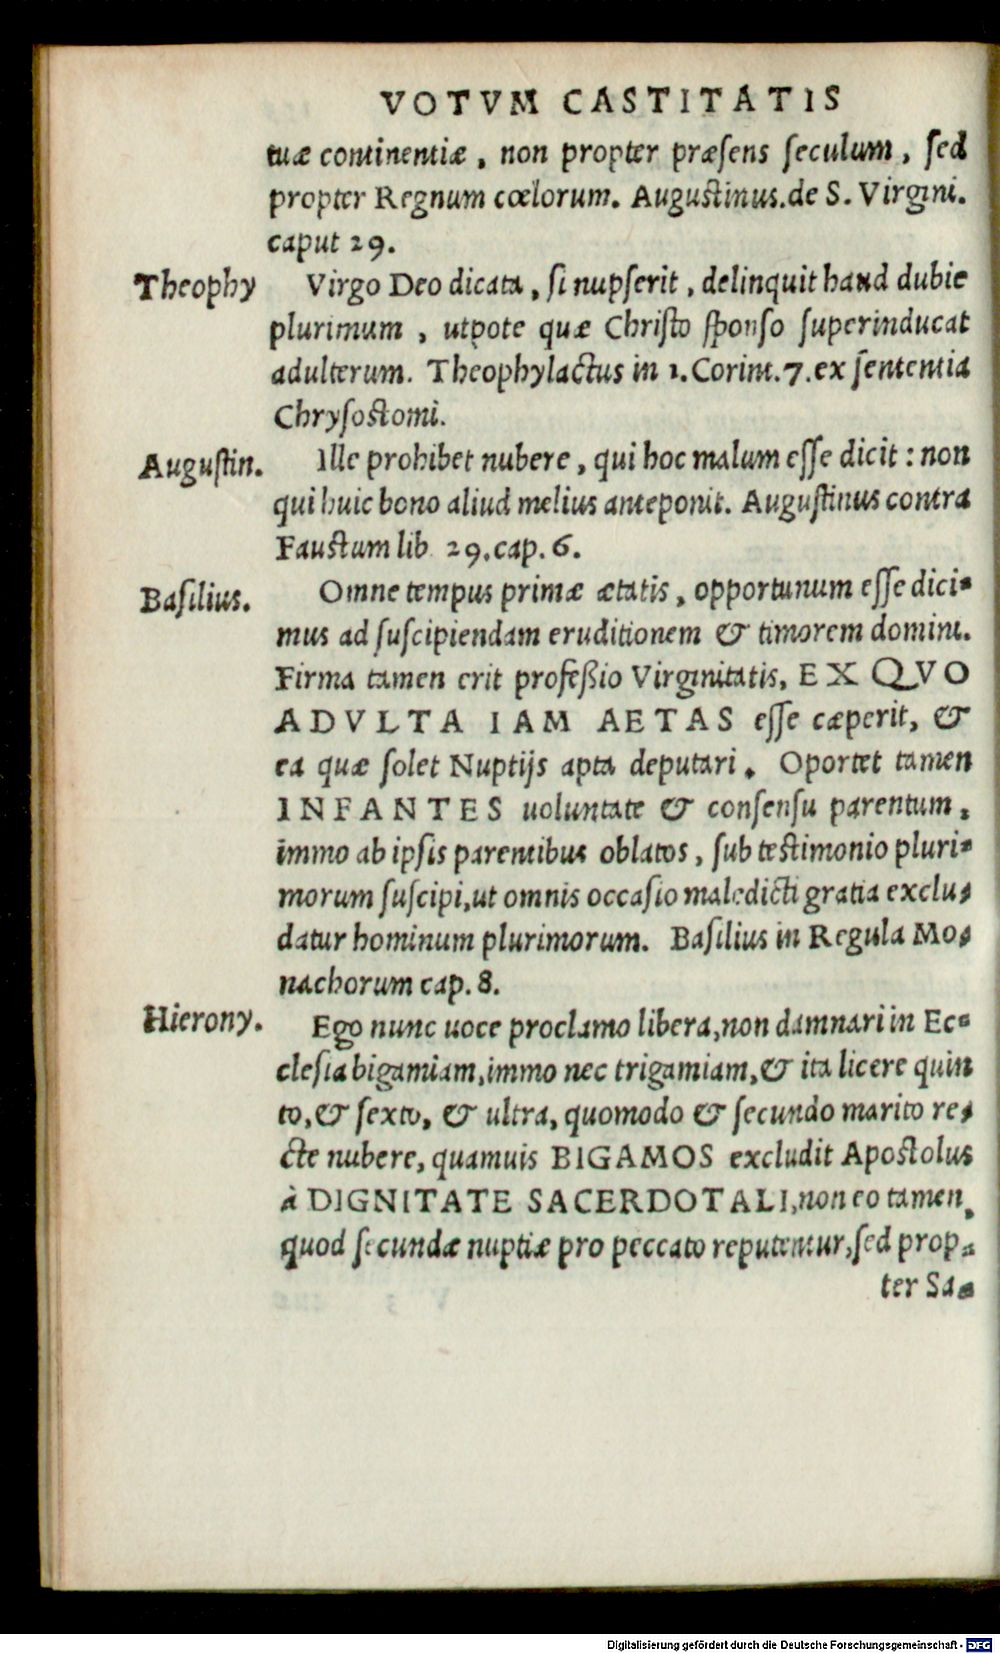 VOTVM CASTITATIS
tuæ continentiæ, non propter præsens seculum, sed
propter Regnum cœlorum. Augustinus. de S. Virgini.
caput 29.
Theophy
Virgo Deo dicata, si nupserit, delinquit haud dubie
plurimum, utpote quæ Christo sponso superinducat
adulterum. Theophylactus in 1. Corint. 7. ex sententia
Chrysostomi.
Augustin.
Ille prohibet nubere, qui hoc malum esse dicit: non
qui huic bono aliud melius anteponit. Augustinus contra
Faustum lib 29. cap. 6.
Basilius.
Omne tempus primæ ætatis, opportunum esse dici-
mus ad suscipiendam eruditionem & timorem domini.
Firma tamen erit profeßio Virginitatis, EX QVO
ADVLTA IAM AETAS esse cæperit, &
ea quæ solet Nuptijs apta deputari. Oportet tamen
INFANTES uoluntate & consensu parentum,
immo ab ipsis parentibus oblatos, sub testimonio pluri-
morum suscipi, ut omnis occasio maledicti gratia exclu-
datur hominum plurimorum. Basilius in Regula Mo-
nachorum cap. 8.
Hierony.
Ego nunc uoce proclamo libera, non damnari in Ec-
clesia bigamiam, immo nec trigamiam, & ita licere quin
to, & sexto, & ultra, quomodo & secundo marito re-
cte nubere, quamuis BIGAMOS excludit Apostolus
à DIGNITATE SACERDOTALI, non eo tamen,
quod secundæ nuptiæ pro peccato reputentur, sed prop-
ter Sa-
Digitalisierung gefördert durch die Deutsche Forschungsgemeinschaft - DFG